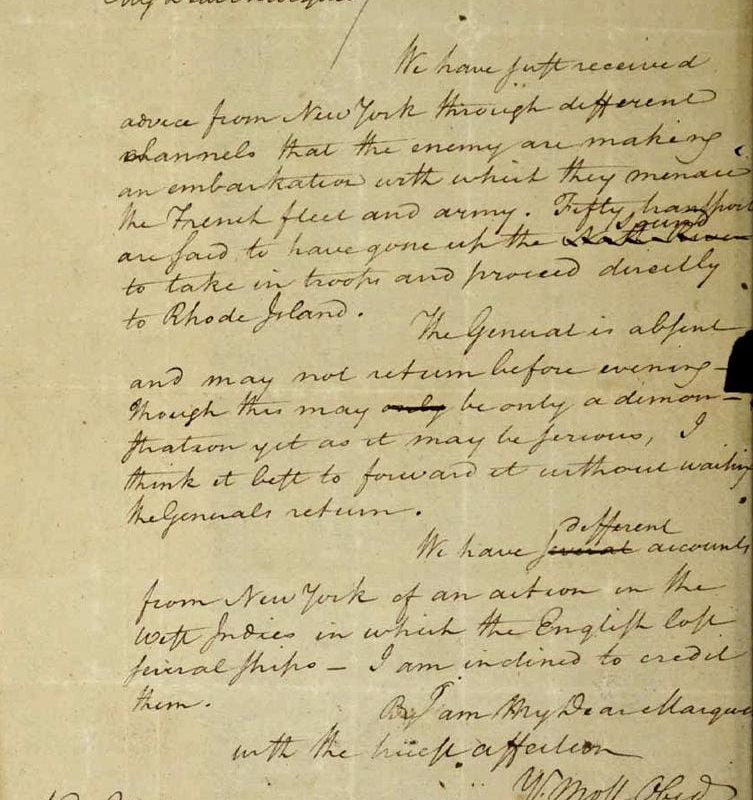 My Dear Marquis
We have just received
advice from New York through different
channels that the enemy are making
an embarkation with which they menace
the French fleet and army. Fifty transports
are said to have gone up the Sound
to take in troops and proceed directly
to Rhode Island.
The General is absent
and may not return before evening –
though this may only be only a demon–
stration yet as it may be serious, I
think it best to forward it without waiting
the Generals return.
different
We have several accounts
from New York of an action in the
West Indies in which the English lost
several ships – I am inclined to credit
them.
I am My Dear Marquis
with the truest affection
Yr. Most Obed